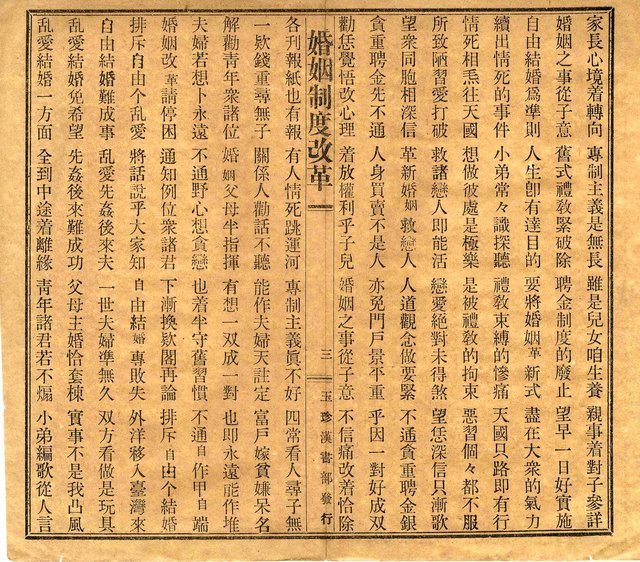 家長心境着轉向 專制主義是無長 雖是兒女咱生養 親事着對子參詳
婚姻之事從子意 舊式禮敎緊破除 聘金制度的廢止 望早一日好實施
自由結婚爲準則 人生卽有達目的 要將婚姻革新式 盡在大衆的氣力
續出情死的事件 小弟常々識探聽 禮敎束縛的慘痛 天國只路即有行
情死相𤆬往天國 想做彼處是極樂 是被禮敎的拘束 惡習個々都不服
所致陋習愛打破 救諸戀人即能活 戀愛絕對未得煞 望恁深信只漸歌
望衆同胞相深信 革新婚姻救戀人 人道觀念做要緊 不通貪重聘金銀
貪重聘金先不通 人身買賣不是人 亦免門戶景平重 乎因一對好成双
勸恁覺悟改心理 着放權利乎子兒 婚姻之事從子意 不信痛改着恰除
婚姻制度改革 三 玉珍漢書部發行
各刊報紙也有報 有人情死跳運河 專制主義眞不好 四常看人尋子無
一欵錢重尋無子 關係人勸話不聽 能作夫婦天註定 富戶嫁貧嫌呆名
解勸靑年衆諸位 婚姻父母半指揮 有想一双成一對 也即永遠能作堆
夫婦若想卜永遠 不通野心想貪戀 也着半守舊習慣 不通自作甲自端
婚姻改革請停困 通知例位衆諸君 下漸換欵閣再論 排斥自由个結婚
排斥自由个亂愛 將話說乎大家知 自由結婚專敗失 外洋移入臺灣來
自由結婚難成事 亂愛先姦後來夫 一世夫婦準無久 双方看做是玩具
亂愛結婚免希望 先姦後來難成功 父母主婚恰套棟 實事不是我凸風
亂愛結婚一方面 全到中途着離緣 靑年諸君若不煽 小弟編歌從人言